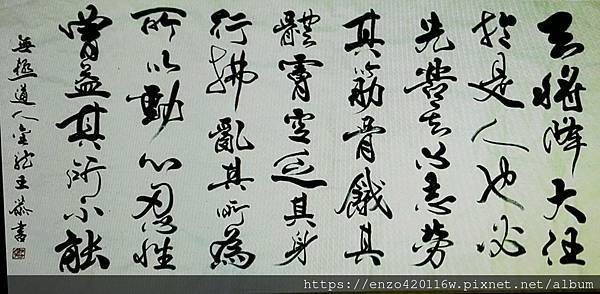 天將降大任
於是人也必
先苦其心志勞
其筋骨餓其
體膚空乏其身
行拂亂其所為
所以動心忍性
曾益其所不能
無極道人金龍王恭書
https://enzo420116w.pixnet.net/album